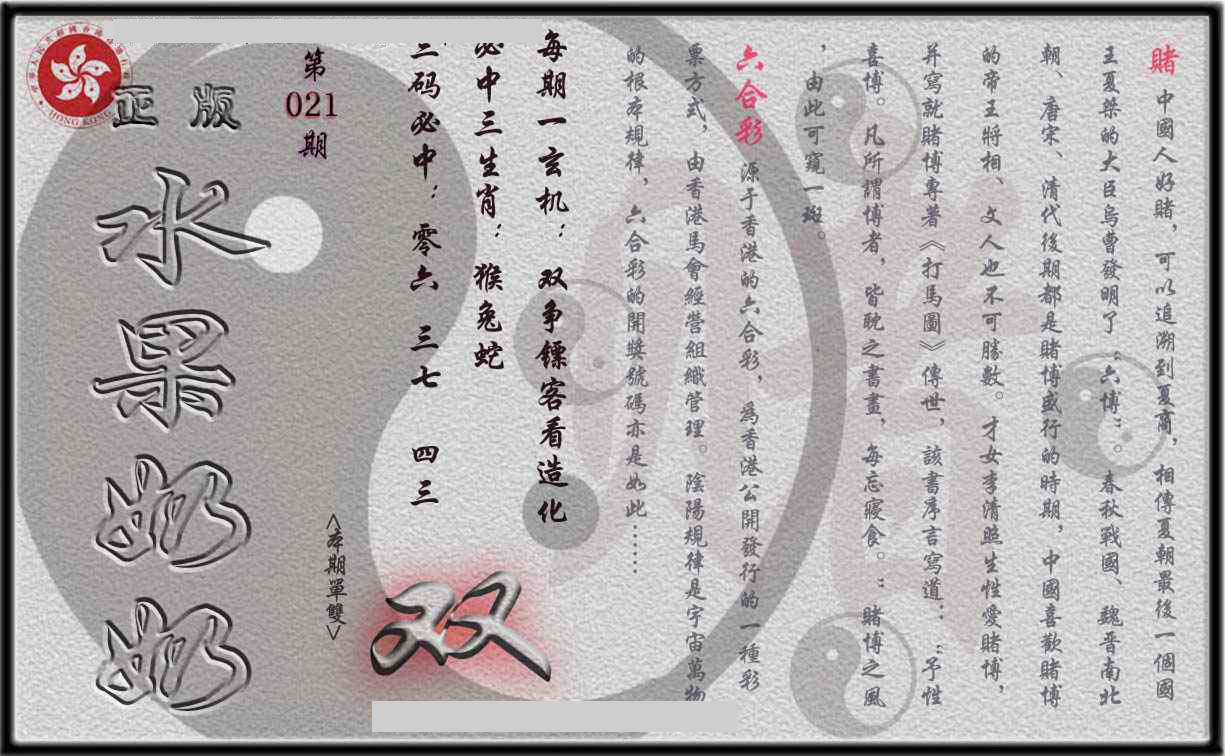 賭 中國人好賭，可以追溯到夏商，相傳夏朝最後一個國
王夏桀的大臣烏曹發明了“六博”。春秋戰國、魏晋南北
朝、唐宋、清代後期都是賭博盛行的時期，中國喜歡賭博
的帝王將相、文人也不可勝數。才女李清照生性愛賭博，
并寫就賭博專著《打馬圖》傳世，該書序言寫道：“予性
喜博。凡所謂博者，皆耽之書畫，每忘寢食。”賭博之風
，由此可窺一斑。
六合彩 源于香港的六合彩，為香港公開發行的一種彩
票方式，由香港馬會經營組織管理。陰陽規律是宇宙萬物
的根本規律，六合彩的開獎號碼亦是如此……
每期一玄机：双争镖客看造化
必中三生肖：猴兔蛇
三码必中：零六 三七 四三
双
<本期單雙>
第
021
期
正版
水果奶奶
HONG KONG